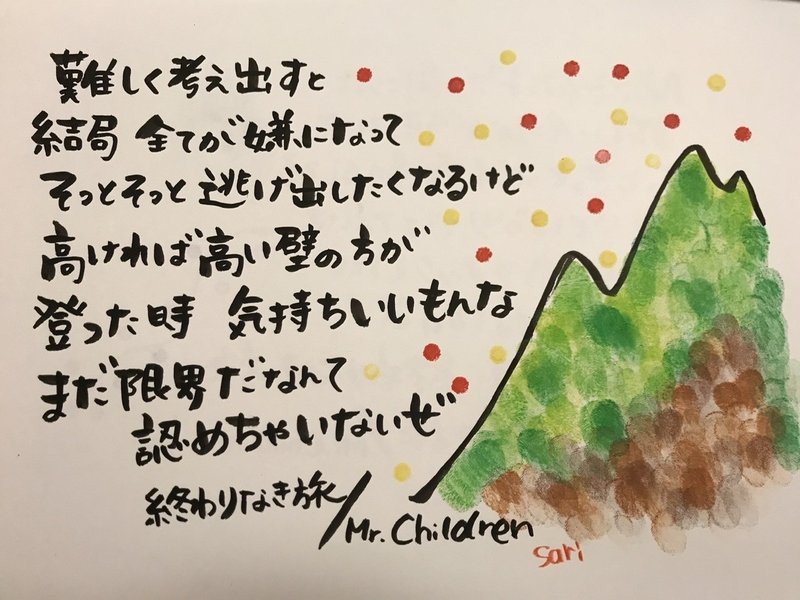 難しく考え出すと
結局 全てが嫌になって
そっとそっと 逃げ出したくなるけど
高ければ高い壁の方が
登った時 気持ちいいもんな
まだ限界だなんて
認めちゃいないぜ
終わりなき旅/Mr. Children
Sari